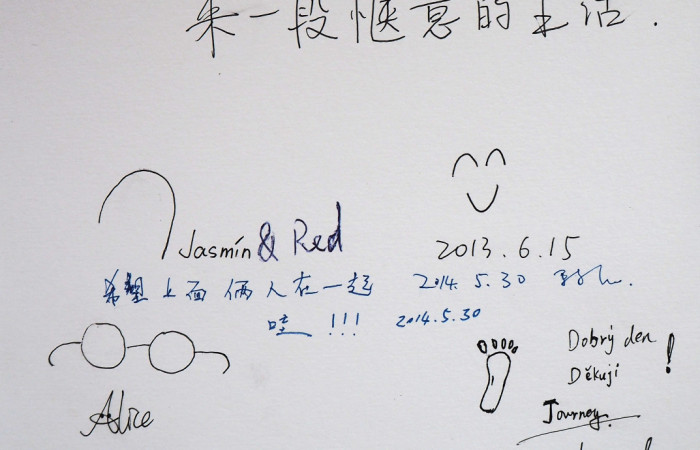 来一段惬意的生活.
Jasmin & Red
2013.6.15
希望上面俩人在一起 2014.5.30
哇 !!! 2014.5.30
Alice
Dobrý den
Děkuji !
Journey.